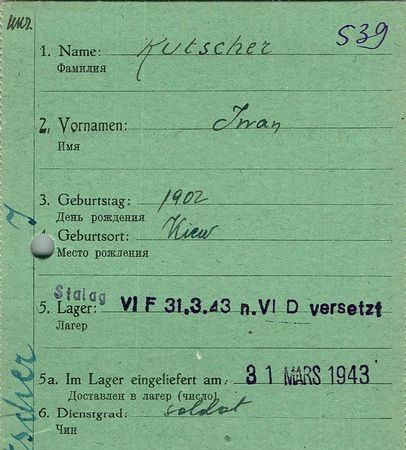 unr.
539
1. Name: Kutscher
Фамилия
2. Vornamen: Iwan
Имя
3. Geburtstag: 1902
День рождения
4. Geburtsort: Kiew
Место рождения
Stalag
5. Lager: VI F 31.3.43 n. VI D versetzt
Лагерь
5a. Im Lager eingeliefert am: 31 MARS 1943
Доставлен в лагерь (число)
6. Dienstgrad: soldat
Чин